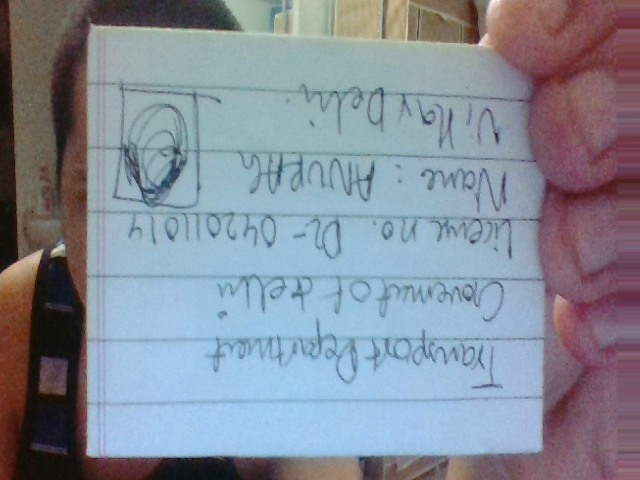 Transport Department
Government of delhi
License no. DL-042011014
Name: ANURAG
Delhi